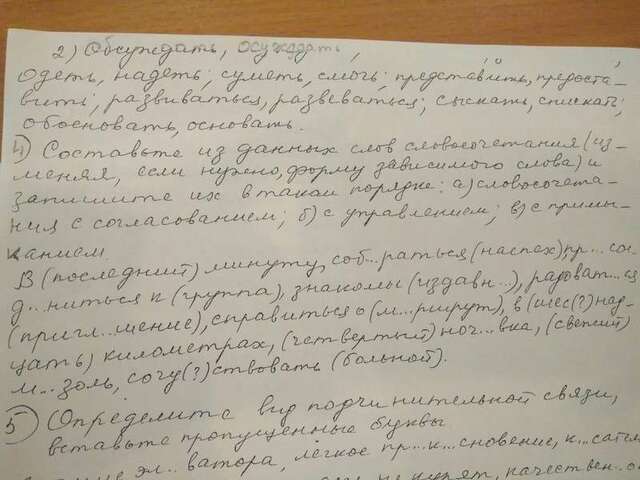 2) Обсуждать, осуждать,
одеть, надеть; суметь, смочь; представить, предоста-
вить; развиваться, развеваться; сыскать, снискать;
обосновать, основать.
4) Составьте из данных слов словосочетания (из-
меняя, если нужно, форму зависимого слова) и
запишите их в таком порядке: а) словосочета-
ния с согласованием; б) с управлением; в) с примы-
канием.
В (последний) минуту, соб...раться (наспех) пр... сое-
д...ниться к (группа), знакомы (издавн...), радоват...ся
(пригл...шение), справиться о (м...ршрут), в (шес(?)над-
цать) километрах, (четвертый) ноч...вка, (свежий)
м...золь, сочу(?)ствовать (больной).
5) Определите вид подчинительной связи,
вставьте пропущенные буквы
эл...ватора, лёгкое пр...к...сновение, к...сател
не курят, качествен..о